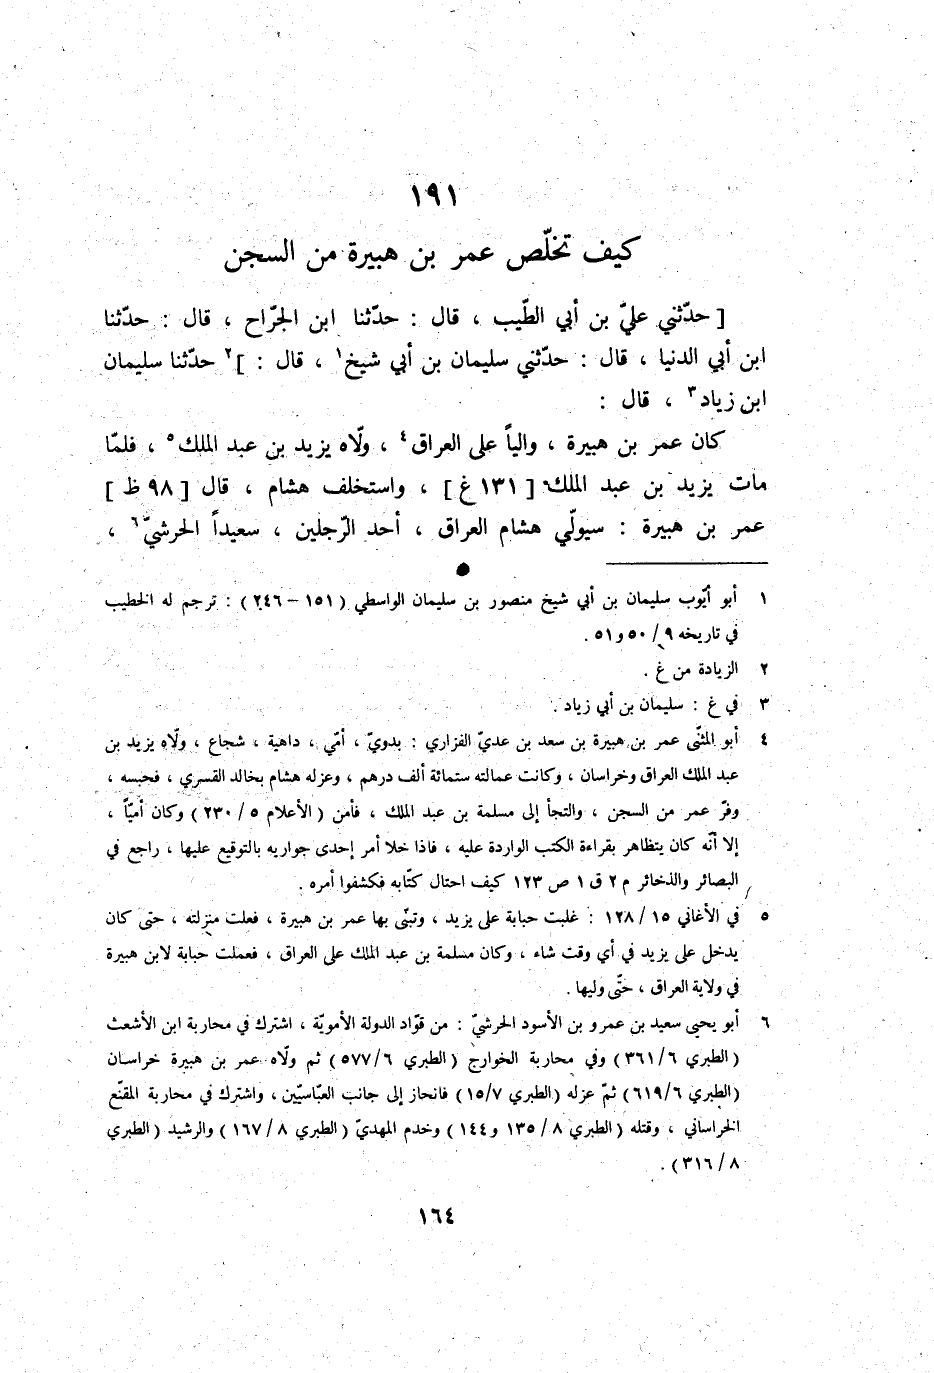 ١٩١
كيف تخلّص عمر بن هبيرة من السجن
[ حدّثني عليّ بن أبي الطّيب ، قال : حدّثنا ابن الجرّاح ، قال : حدّثنا
ابن أبي الدنيا ، قال : حدّثني سليمان بن أبي شيخ١ ، قال : ]٢ حدّثنا سليمان
ابن زياد٣ ، قال :
كان عمر بن هبيرة ، والياً على العراق٤ ، ولّاه يزيد بن عبد الملك٥ ، فلمّا
مات يزيد بن عبد الملك [ ١٣١ غ ] ، واستخلف هشام ، قال [ ٩٨ ظ ]
عمر بن هبيرة : سيولّي هشام العراق ، أحد الرّجلين ، سعيداً الحرشيّ٦ ،
١ أبو أيّوب سليمان بن أبي شيخ منصور بن سليمان الواسطي ( ١٥١ – ٢٤٦ ) : ترجم له الخطيب
في تاريخه ٩ / ٥٠ و ٥١ .
٢ الزيادة من غ .
٣ في غ : سليمان بن أبي زياد .
٤ أبو المثنّى عمر بن هبيرة بن سعد بن عديّ الفزاري : بدويّ ، أمّي ، داهية ، شجاع ، ولّاه يزيد بن
عبد الملك العراق وخراسان ، وكانت عمالته ستمائة ألف درهم ، وعزله هشام بخالد القسري ، فحبسه ،
وفرّ عمر من السجن ، والتجأ إلى مسلمة بن عبد الملك ، فأمن ( الأعلام ٥ / ٢٣٠ ) وكان أميّاً ،
إلا أنّه كان يتظاهر بقراءة الكتب الواردة عليه ، فاذا خلا أمر إحدى جواريه بالتوقيع عليها ، راجع في
البصائر والذخائر م ٢ ق ١ ص ١٢٣ كيف احتال كتّابه فكشفوا أمره .
٥ في الأغاني ١٥ / ١٢٨ : غلبت حبابة على يزيد ، وتبنّى بها عمر بن هبيرة ، فعلت منزلته ، حتى كان
يدخل على يزيد في أي وقت شاء ، وكان مسلمة بن عبد الملك على العراق ، فعملت حبابة لابن هبيرة
في ولاية العراق ، حتّى وليها .
٦ أبو يحيى سعيد بن عمرو بن الأسود الحرشيّ : من قوّاد الدولة الأمويّة ، اشترك في محاربة ابن الأشعث
(الطبري ٦/ ٣٦١ ) وفي محاربة الخوارج (الطبري ٦/ ٥٧٧) ثم ولّاه عمر بن هبيرة خراسان
(الطبري ٦/ ٦١٩) ثمّ عزله (الطبري ٧/ ١٥) فانحاز إلى جانب العبّاسيّين ، واشترك في محاربة المقنّع
الخراساني ، وقتله ( الطبري ٨ / ١٣٥ و ١٤٤ ) وخدم المهديّ ( الطبري ٨ / ١٦٧ ) والرشيد ( الطبري
٨ / ٣١٦ ) .
١٦٤